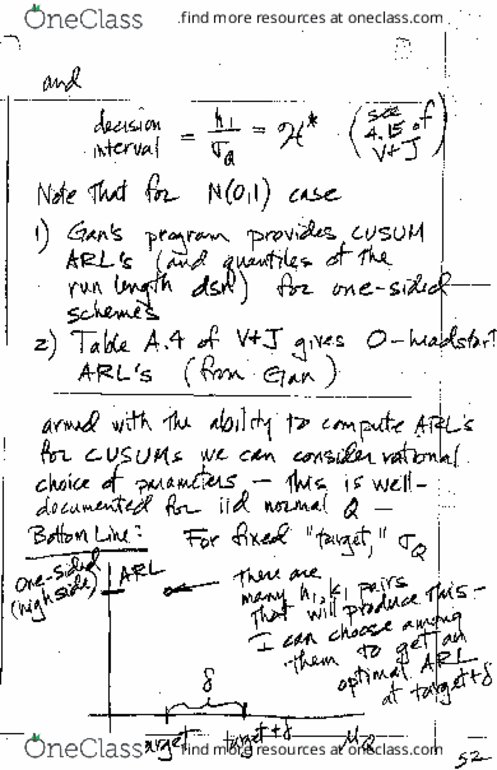 OneClass
.find more resources at oneclass.com
and
decision interval = h₁/σ_Q = ℋ* (see 4.15 of V+J)
Note that for N(0,1) case
1) Gan's program provides CUSUM
ARL's (and quantiles of the
run length dsn) for one-sided
schemes
2) Table A.4 of V+J gives 0-headstart
ARL's (from Gan)
armed with the ability to compute ARL's
for CUSUMs we can consider rational
choice of parameters — this is well-
documented for iid normal Q —
Bottom Line: For fixed "target," σ_Q
one-sided
(high side)
ARL
there are
many h₁, k₁ pairs
that will produce this -
I can choose among
them to get an
optimal ARL
at target+δ
δ
target target+δ μ_Q
OneClass
find more resources at oneclass.com
52